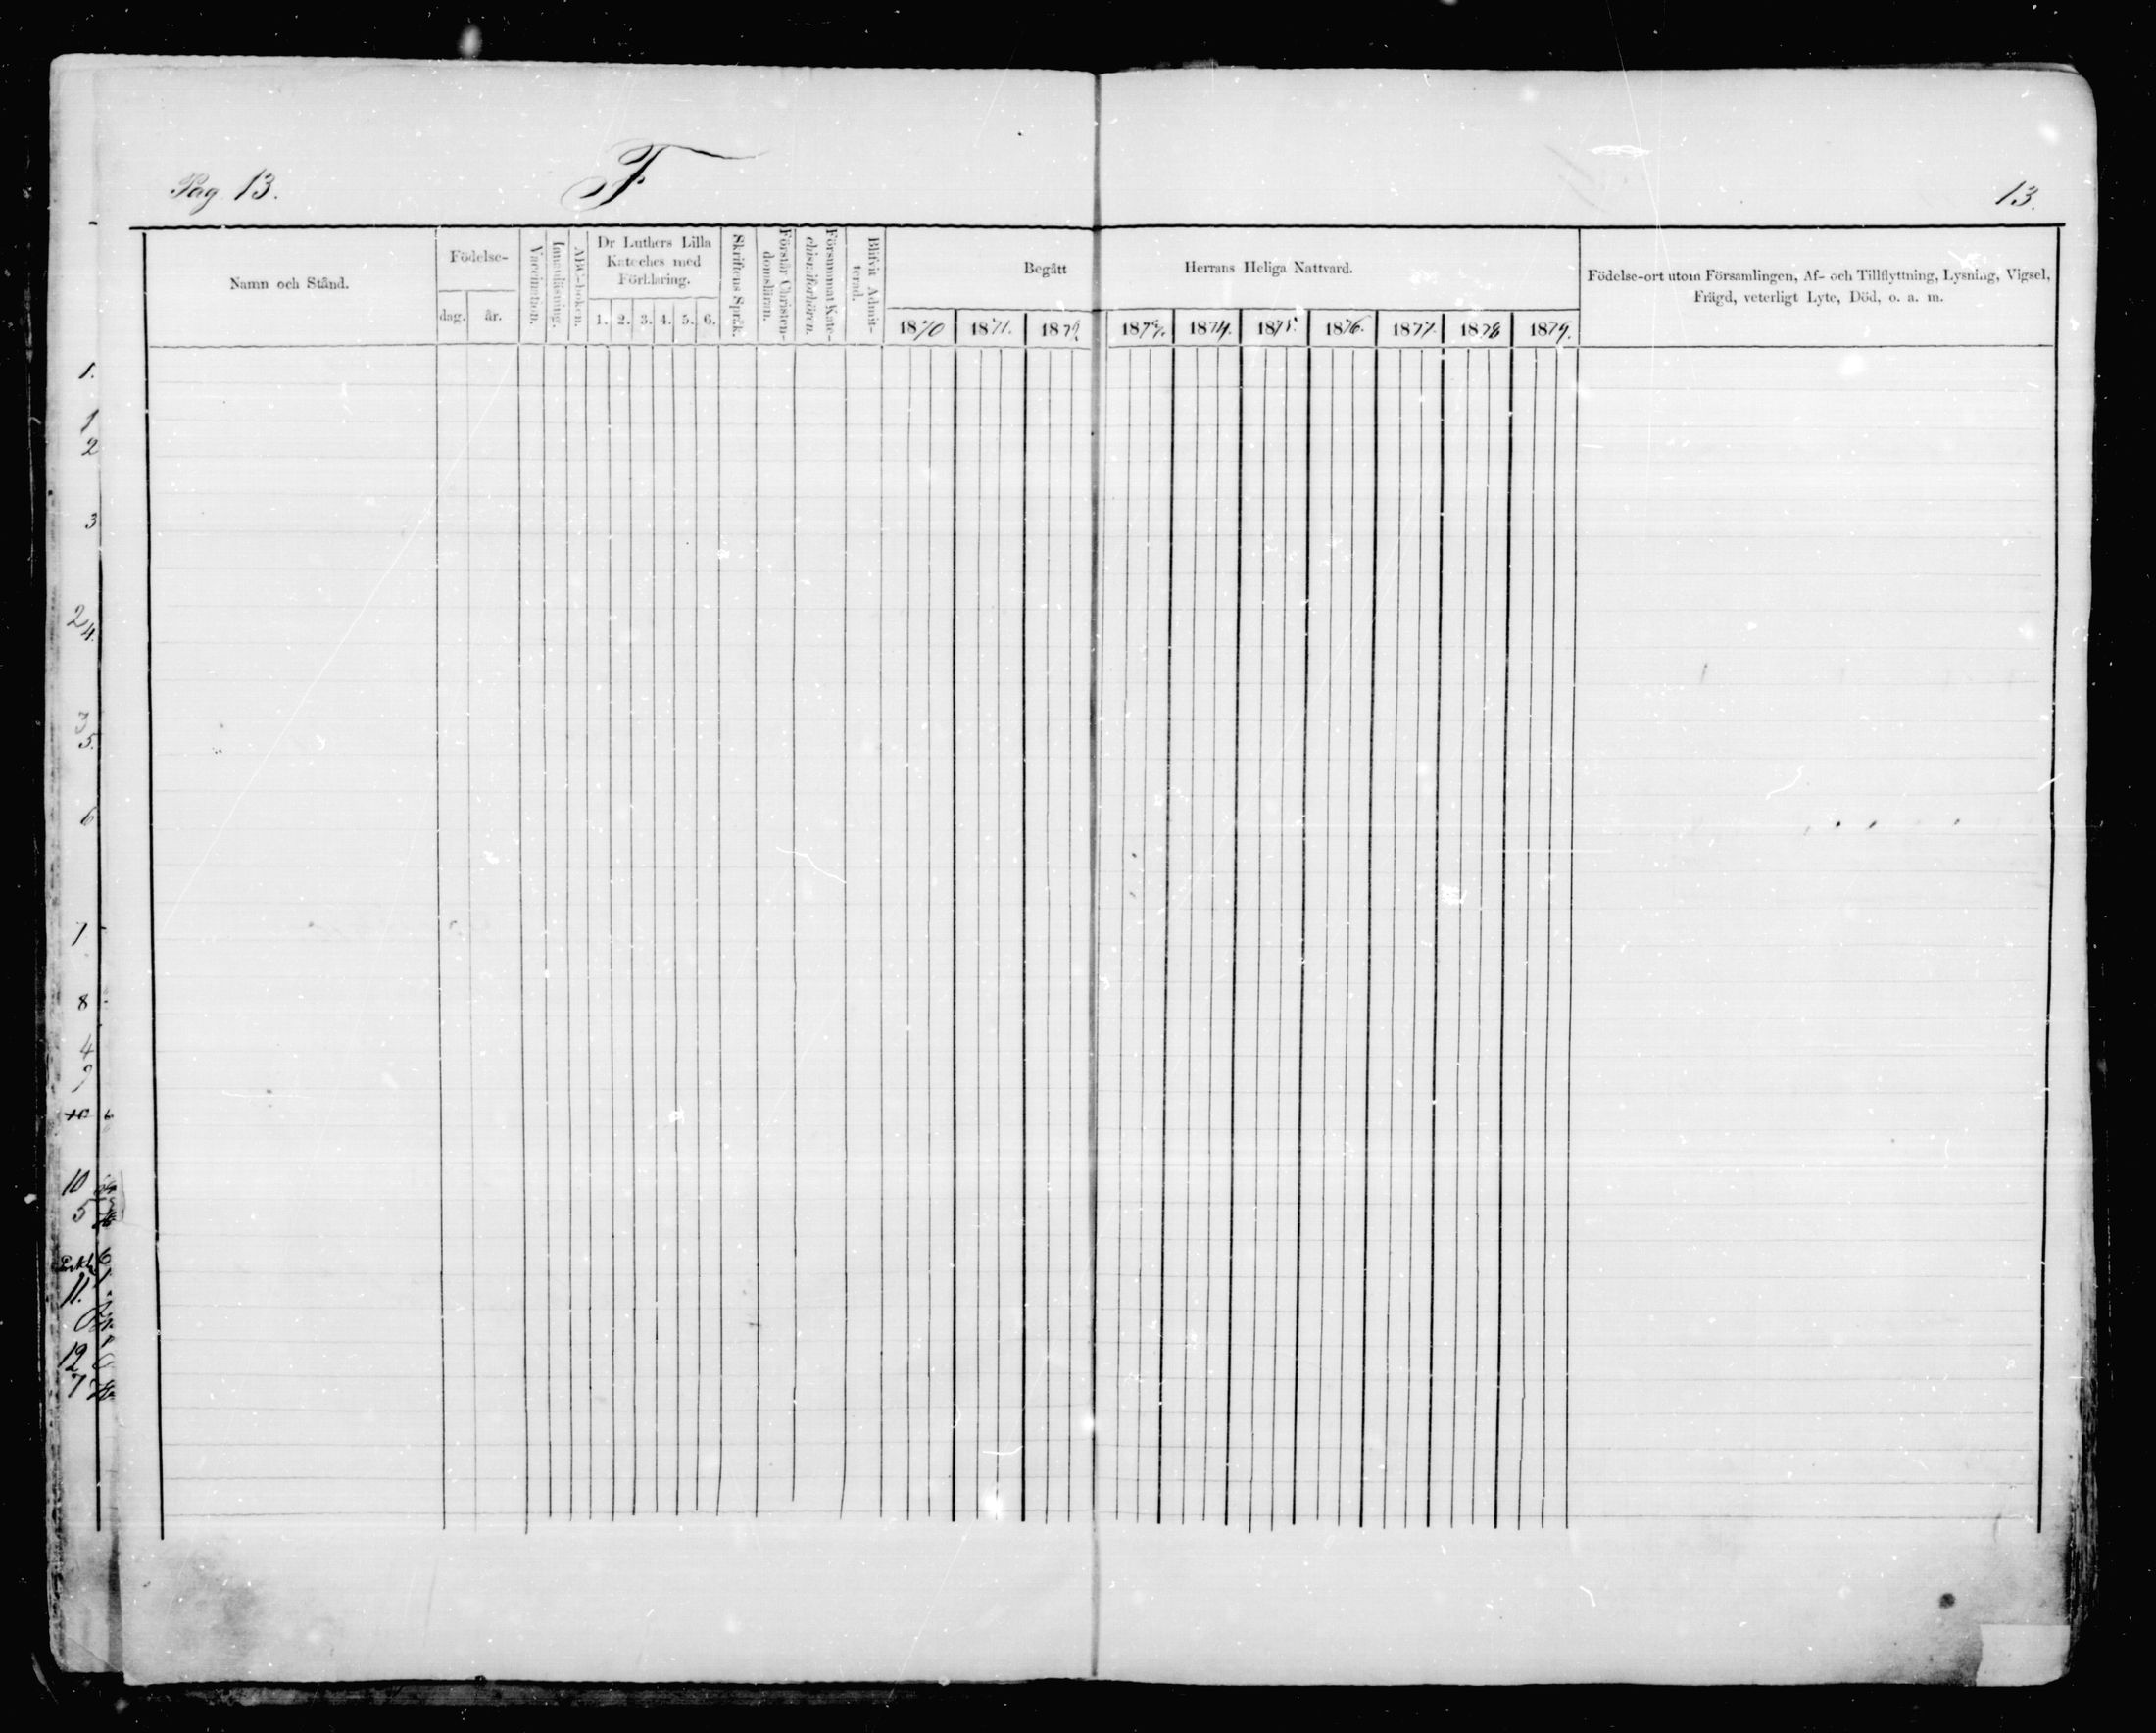 Pag 13.
F
13.
Namn och Stånd.
Födelse-
dag.
år.
Vaccination.
Innanläsning.
ABC-boken.
Dr Luthers Lilla
Kateches med
Förklaring.
1. 2. 3. 4. 5. 6.
Skriftens Språk.
Förstår Christen-
domsläran.
Försummat Kate-
chismiförhören.
Blifvit Admit-
terad.
Begått Herrans Heliga Nattvard.
1870 1871. 1872. 1873. 1874. 1875. 1876. 1877. 1878 1879.
Födelse-ort utom Församlingen, Af- och Tillflyttning, Lysning, Vigsel,
Frägd, veterligt Lyte, Död, o. a. m.
1.
1
2
3
2
4.
3
5.
6
7
8
4
10
5
11.
12
7